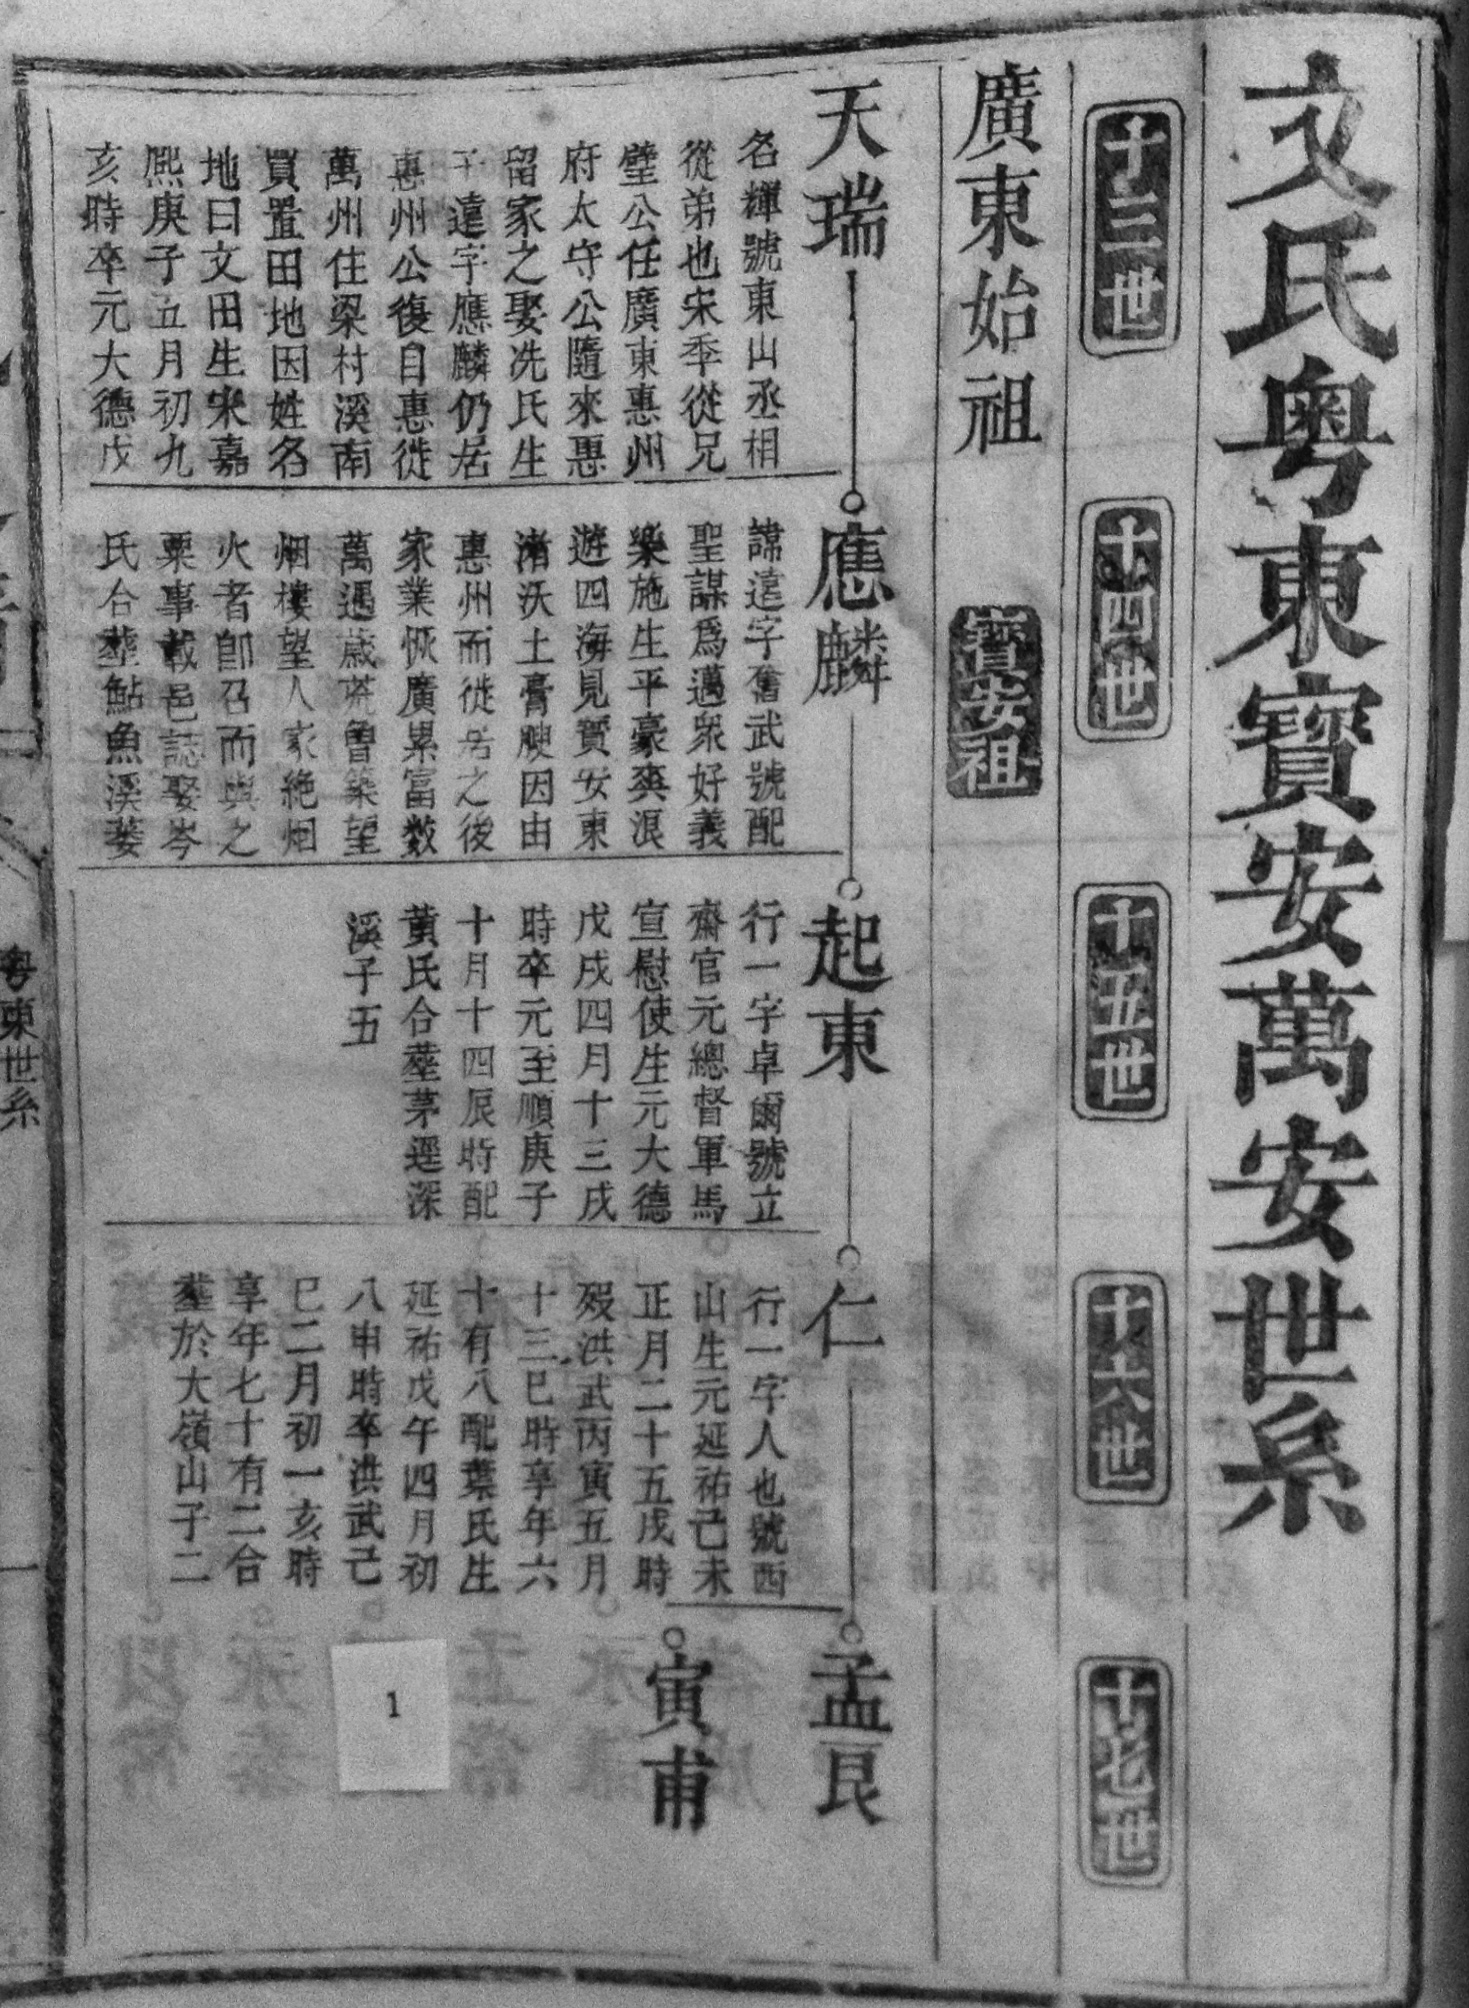 文氏粤東寶安萬安世系
十三世
十四世
十五世
十六世
十七世
廣東始祖
寶安祖
天瑞
名輝號東山丞相
從弟也宋季從兄
璧公任廣東惠州
府太守公隨來惠
留家之娶冼氏生
子遠字應麟仍居
惠州公復自惠徙
萬州住梁村溪南
買置田地因姓名
地曰文田生宋嘉
熙庚子五月初九
亥時卒元大德戊
應麟
諱遠字奮武號配
聖謀爲邁衆好義
樂施生平豪爽浪
遊四海見寶安東
渚沃土膏腴因由
惠州而徙居之後
家業恢廣累富数
萬遇歲荒曾築望
烟樓望人家絶烟
火者卽召而與之
粟事載邑誌娶岑
氏合塟鮎魚溪蒌
起東
行一字卓爾號立
齋官元總督軍馬
宣慰使生元大德
戊戌四月十三戌
時卒元至順庚子
十月十四辰時配
黃氏合塟茅逕深
溪子五
仁
行一字人也號西
山生元延祐己未
正月二十五戌時
歿洪武丙寅五月
十三巳時享年六
十有八配葉氏生
延祐戊午四月初
八申時卒洪武己
巳二月初一亥時
享年七十有二合
塟於大嶺山子二
孟艮
寅甫
1
粤東世系
一